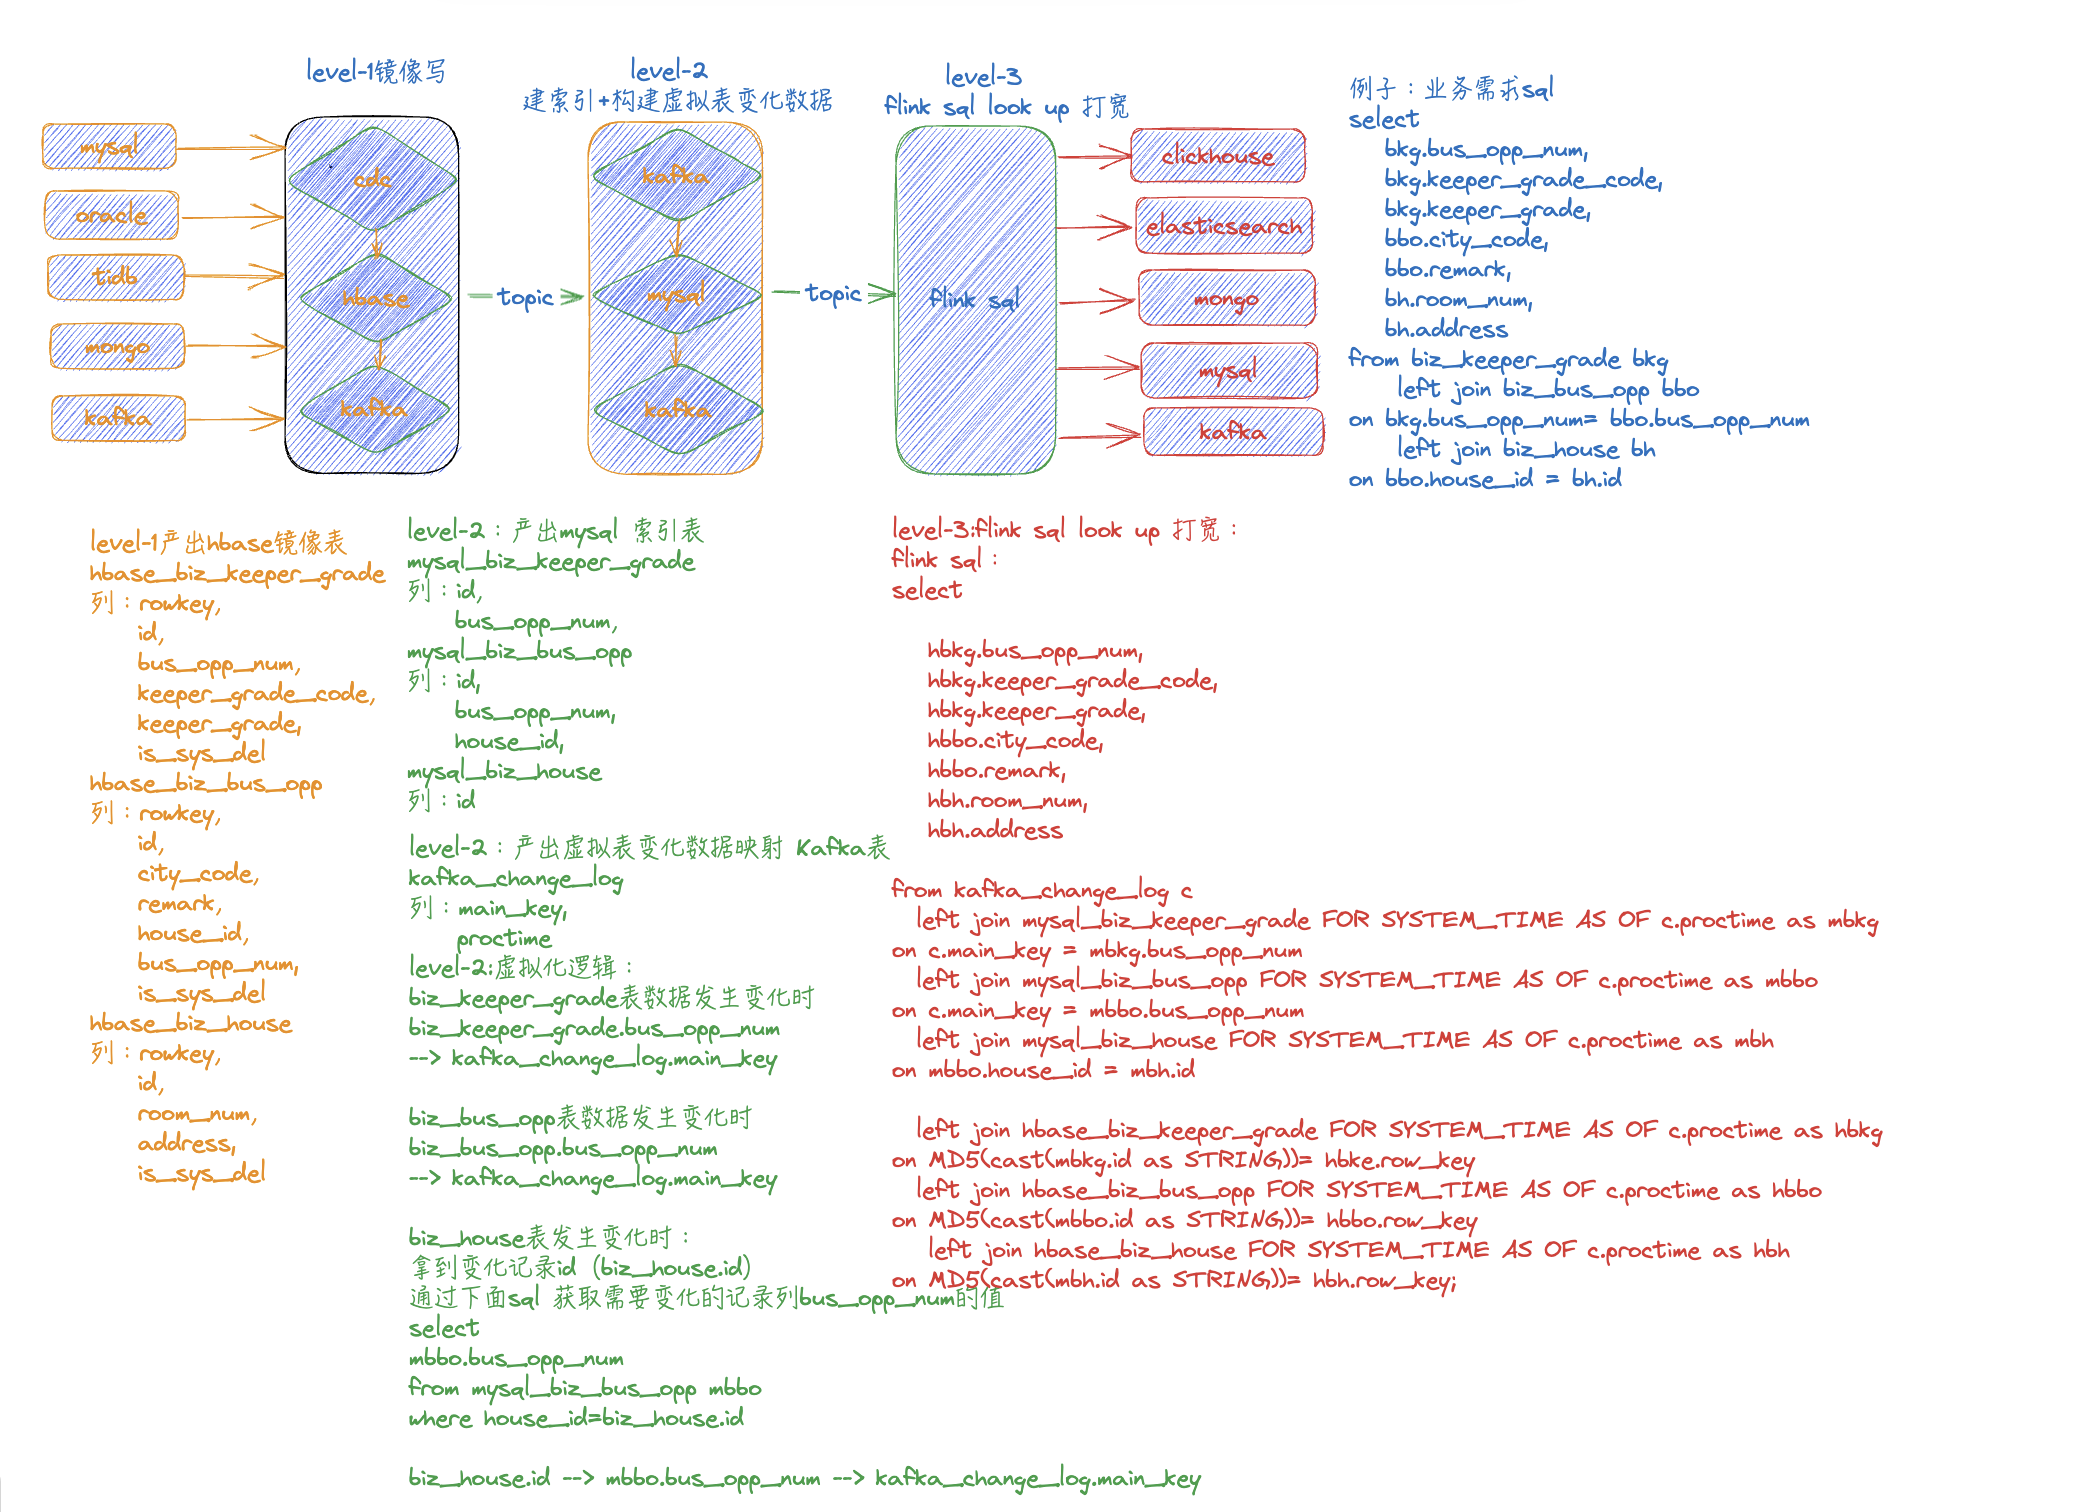 level-1镜像写
level-2
建索引+构建虚拟表变化数据
level-3
flink sql look up 打宽
mysql
oracle
tidb
mongo
kafka
cdc
hbase
kafka
topic
kafka
mysql
kafka
topic
flink sql
clickhouse
elasticsearch
mongo
mysql
kafka
例子：业务需求sql
select
bkg.bus_opp_num,
bkg.keeper_grade_code,
bkg.keeper_grade,
bbo.city_code,
bbo.remark,
bh.room_num,
bh.address
from biz_keeper_grade bkg
left join biz_bus_opp bbo
on bkg.bus_opp_num= bbo.bus_opp_num
left join biz_house bh
on bbo.house_id = bh.id
level-1产出hbase镜像表
hbase_biz_keeper_grade
列：rowkey,
id,
bus_opp_num,
keeper_grade_code,
keeper_grade,
is_sys_del
hbase_biz_bus_opp
列：rowkey,
id,
city_code,
remark,
house_id,
bus_opp_num,
is_sys_del
hbase_biz_house
列：rowkey,
id,
room_num,
address,
is_sys_del
level-2：产出mysql 索引表
mysql_biz_keeper_grade
列：id,
bus_opp_num,
mysql_biz_bus_opp
列：id,
bus_opp_num,
house_id,
mysql_biz_house
列：id
level-2：产出虚拟表变化数据映射 Kafka表
kafka_change_log
列：main_key,
proctime
level-2:虚拟化逻辑：
biz_keeper_grade表数据发生变化时
biz_keeper_grade.bus_opp_num
--> kafka_change_log.main_key
biz_bus_opp表数据发生变化时
biz_bus_opp.bus_opp_num
--> kafka_change_log.main_key
biz_house表发生变化时：
拿到变化记录id（biz_house.id）
通过下面sql 获取需要变化的记录列bus_opp_num的值
select
mbbo.bus_opp_num
from mysql_biz_bus_opp mbbo
where house_id=biz_house.id
biz_house.id --> mbbo.bus_opp_num --> kafka_change_log.main_key
level-3:flink sql look up 打宽：
flink sql：
select
hbkg.bus_opp_num,
hbkg.keeper_grade_code,
hbkg.keeper_grade,
hbbo.city_code,
hbbo.remark,
hbh.room_num,
hbh.address
from kafka_change_log c
left join mysql_biz_keeper_grade FOR SYSTEM_TIME AS OF c.proctime as mbkg
on c.main_key = mbkg.bus_opp_num
left join mysql_biz_bus_opp FOR SYSTEM_TIME AS OF c.proctime as mbbo
on c.main_key = mbbo.bus_opp_num
left join mysql_biz_house FOR SYSTEM_TIME AS OF c.proctime as mbh
on mbbo.house_id = mbh.id
left join hbase_biz_keeper_grade FOR SYSTEM_TIME AS OF c.proctime as hbkg
on MD5(cast(mbkg.id as STRING))= hbke.row_key
left join hbase_biz_bus_opp FOR SYSTEM_TIME AS OF c.proctime as hbbo
on MD5(cast(mbbo.id as STRING))= hbbo.row_key
left join hbase_biz_house FOR SYSTEM_TIME AS OF c.proctime as hbh
on MD5(cast(mbh.id as STRING))= hbh.row_key;